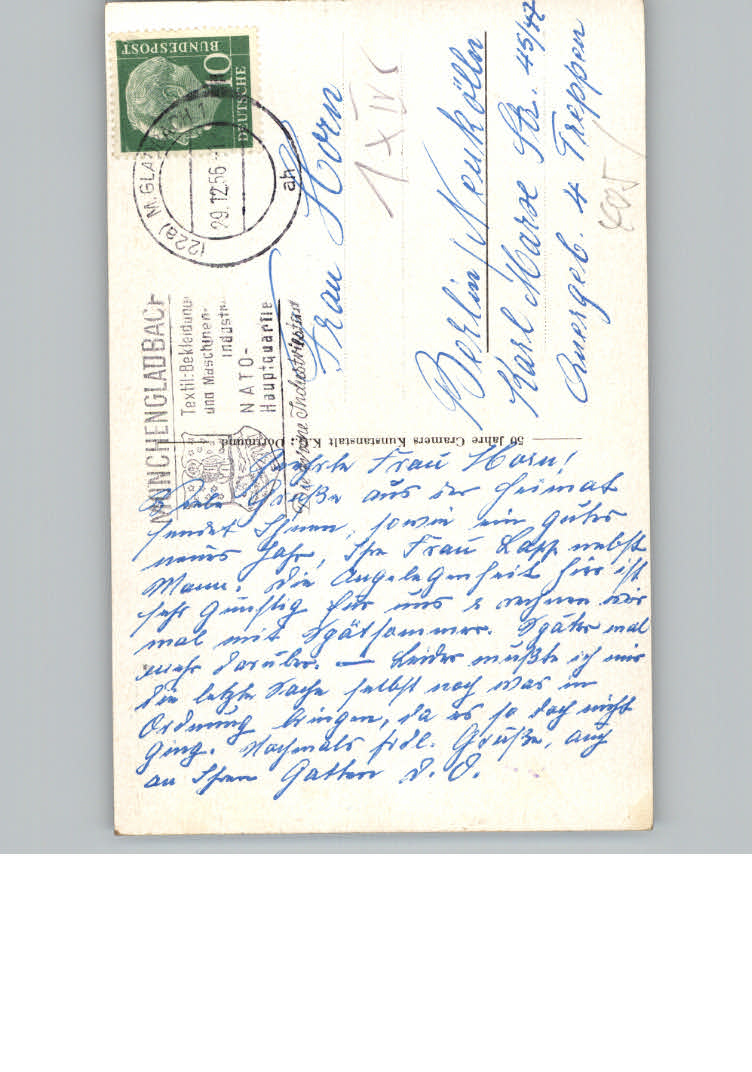 DEUTSCHE
BUNDESPOST
10
(22a) M. GLADBACH 1
29.12.56
ah
MÜNCHENGLADBACH
Textil-Bekleidung
und Maschinen-
industrie
NATO-
Hauptquartier
Frau Horn
Berlin/Neukölln
Karl Marx Str. 45/47
Quergeb. 4 Treppen
50 Jahre Cramers Kunstanstalt K.G., Dortmund
Frau Horn!
Viele Grüße aus der Heimat
sendet Ihnen, sowie ein gutes
neues Jahr, Ihre Frau Lapp nebst
Mann. Die Angelegenheit hier ist
sehr günstig für uns & rechnen wir
mal mit Spätsommer. Später mal
mehr darüber. — Leider mußte ich mir
die letzte Sache selbst noch was in
Ordnung bringen, da es so doch nicht
ging. Nochmals frdl. Grüße, auch
an Ihren Gatten D. O.